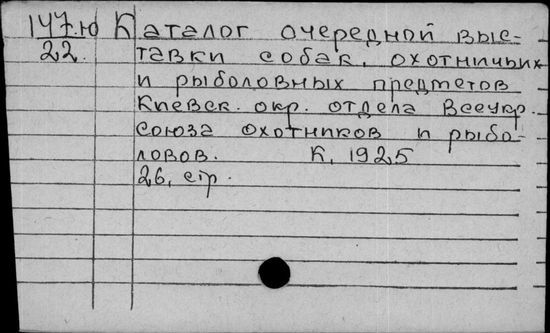 147.ю Каталог очередной выс-
22. тавки собак, охотничьих
и рыболовных предметов
Киевск. окр. отдела Всеукр.
союза охотников и рыбо-
ловов. К, 1925
26, стр.